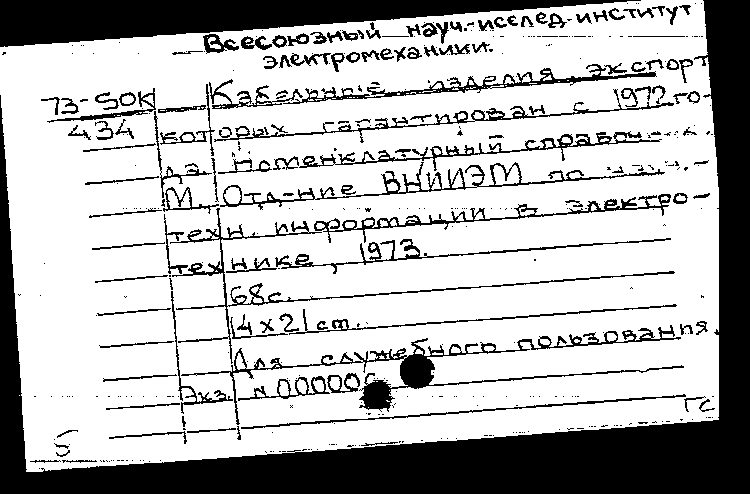 Всесоюзный науч.-исслед. институт
электромеханики.
73-50К
434
Кабельные изделия, экспорт
которых гарантирован с 1972 го-
да. Номенклатурный справочник.
М., Отд-ние ВНИИЭМ по науч.-
техн. информации в электро-
технике, 1973.
68с.
14х21см.
Для служебного пользования.
Экз. N 000006
5
ГС